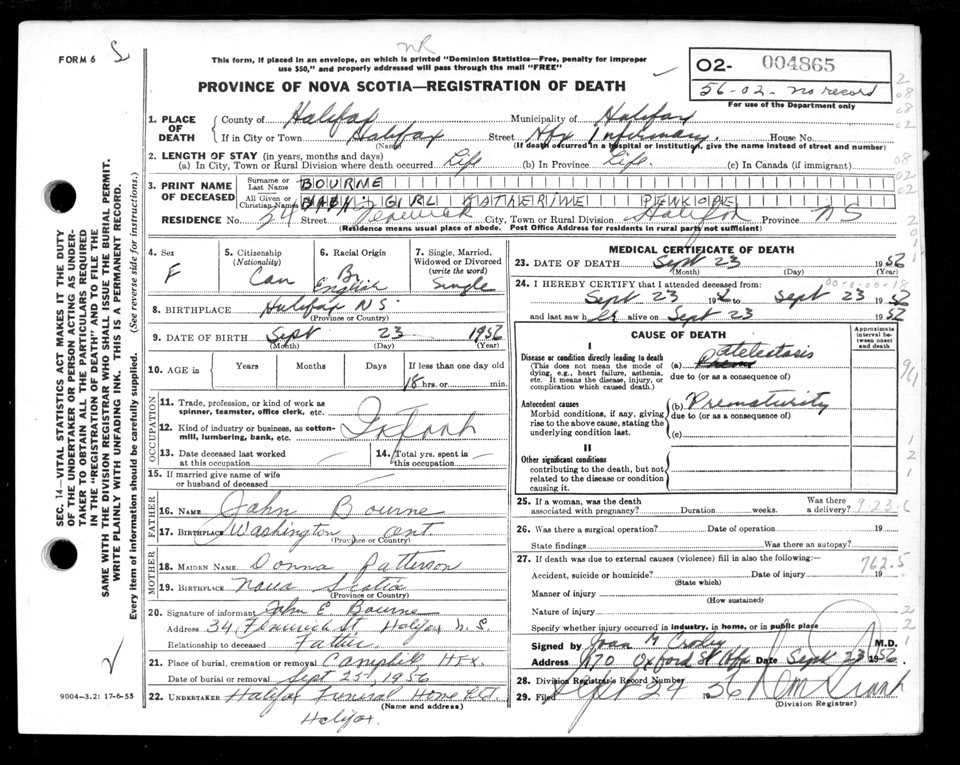 FORM 6
NR
This form, if placed in an envelope, on which is printed "Dominion Statistics—Free, penalty for improper
use $50," and properly addressed will pass through the mail "FREE"
PROVINCE OF NOVA SCOTIA—REGISTRATION OF DEATH
02- 004865
56-02- no record
For use of the Department only
1. PLACE OF DEATH
County of Halifax Municipality of Halifax
If in City or Town Halifax Street Hfx Infirmary. House No.
(Name) (If death occurred in a hospital or institution, give the name instead of street and number)
2. LENGTH OF STAY (in years, months and days)
(a) In City, Town or Rural Division where death occurred Life (b) In Province Life (c) In Canada (if immigrant)
3. PRINT NAME OF DECEASED
Surname or Last Name BOURNE
All Given or Christian Names BABY GIRL KATHERINE
RESIDENCE No. 34 Street Fenwick City, Town or Rural Division Halifax Province NS
(Residence means usual place of abode. Post Office Address for residents in rural parts not sufficient)
4. Sex
F
5. Citizenship
(Nationality)
Can
6. Racial Origin
Br
English
7. Single, Married,
Widowed or Divorced
(write the word)
Single
8. BIRTHPLACE Halifax NS
(Province or Country)
9. DATE OF BIRTH Sept 23 1956
(Month) (Day) (Year)
10. AGE in
Years Months Days If less than one day old
18 hrs. or min.
OCCUPATION
11. Trade, profession, or kind of work as
spinner, teamster, office clerk, etc.
Infant
12. Kind of industry or business, as cotton-
mill, lumbering, bank, etc.
13. Date deceased last worked
at this occupation
14. Total yrs. spent in
this occupation
15. If married give name of wife
or husband of deceased
FATHER
16. NAME John Bourne
17. BIRTHPLACE Washington Ont.
(Province or Country)
MOTHER
18. MAIDEN NAME Donna Patterson
19. BIRTHPLACE Nova Scotia
(Province or Country)
20. Signature of informant John E Bourne
Address 34 Fenwick St Halifax N.S.
Relationship to deceased Father
21. Place of burial, cremation or removal Camphill Hfx.
Date of burial or removal Sept 25, 1956
22. UNDERTAKER Halifax Funeral Home Ltd.
(Name and address)
Halifax.
MEDICAL CERTIFICATE OF DEATH
23. DATE OF DEATH Sept 23 1956
(Month) (Day) (Year)
24. I HEREBY CERTIFY that I attended deceased from
00-0-00-18
Sept 23 1956 to Sept 23 1956
and last saw her alive on Sept 23 1956
CAUSE OF DEATH
Approximate
interval be-
tween onset
and death
I
Disease or condition directly leading to death
(This does not mean the mode of
dying, e.g., heart failure, asthenia,
etc. It means the disease, injury, or
complication which caused death.)
(a) atelectasis
due to (or as a consequence of)
Antecedent causes
Morbid conditions, if any, giving
rise to the above cause, stating the
underlying condition last.
(b) Prematurity
due to (or as a consequence of)
(c)
II
Other significant conditions
contributing to the death, but not
related to the disease or condition
causing it.
25. If a woman, was the death
associated with pregnancy? Duration weeks. Was there
a delivery?
923-6
26. Was there a surgical operation? Date of operation 19
State findings Was there an autopsy?
27. If death was due to external causes (violence) fill in also the following:—
762.5
Accident, suicide or homicide? Date of injury 19
(State which)
Manner of injury
(How sustained)
Nature of injury
Specify whether injury occurred in industry, in home, or in public place
Signed by Joan M Crosby M.D.
Address 170 Oxford St Hfx Date Sept 23 1956
28. Division Registrar's Record Number
29. Filed Sept 24 1956
(Division Registrar)
SEC. 14—VITAL STATISTICS ACT MAKES IT THE DUTY
OF THE UNDERTAKER OR PERSON ACTING AS UNDER-
TAKER TO OBTAIN ALL THE PARTICULARS REQUIRED
IN THE "REGISTRATION OF DEATH" AND TO FILE THE
SAME WITH THE DIVISION REGISTRAR WHO SHALL ISSUE THE BURIAL PERMIT.
WRITE PLAINLY WITH UNFADING INK. THIS IS A PERMANENT RECORD.
Every item of information should be carefully supplied. (See reverse side for instructions.)
9004-3.2: 17-6-53